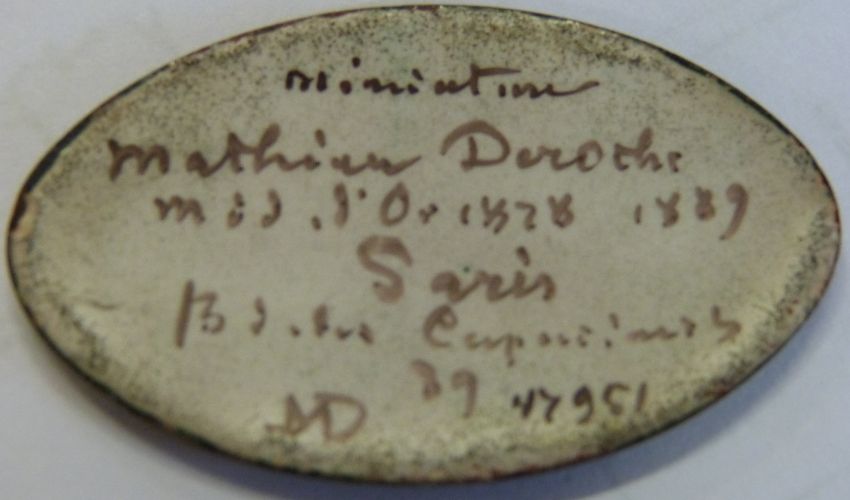 miniature
Mathieu Deroche
Méd. d'Or 1878 1889
Paris
Bd. des Capucines
39 47951